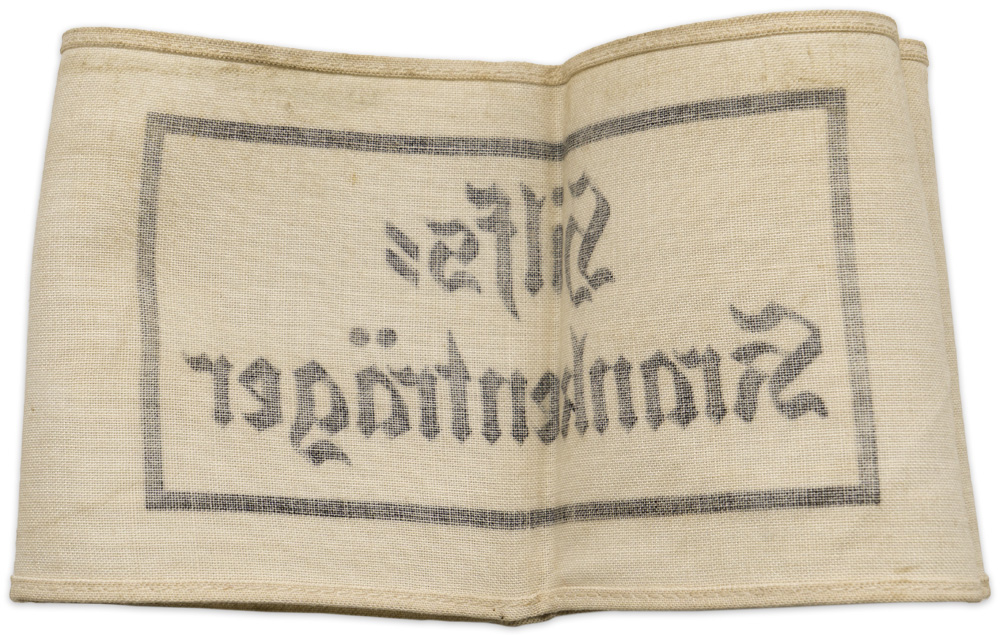 Hilfs=
Krankenträger